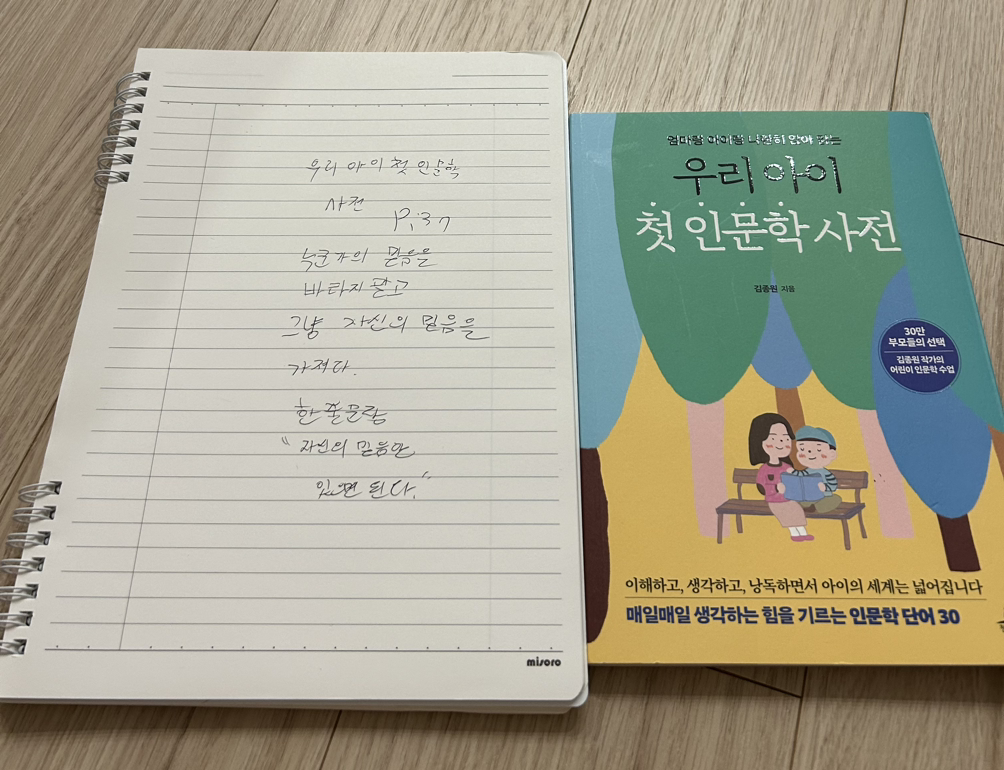 우리 아이 첫 인문학
사전
P.37
누군가의 믿음을
바라지 말고
그냥 자신의 믿음을
가져다.
한줄문장
"자신의 믿음만
있으면 된다."
misoro
엄마랑 아이랑 나란히 앉아 읽는
우리 아이
첫 인문학 사전
김종원 지음
30만
부모들의 선택
김종원 작가의
어린이 인문학 수업
이해하고, 생각하고, 낭독하면서 아이의 세계는 넓어집니다
매일매일 생각하는 힘을 기르는 인문학 단어 30